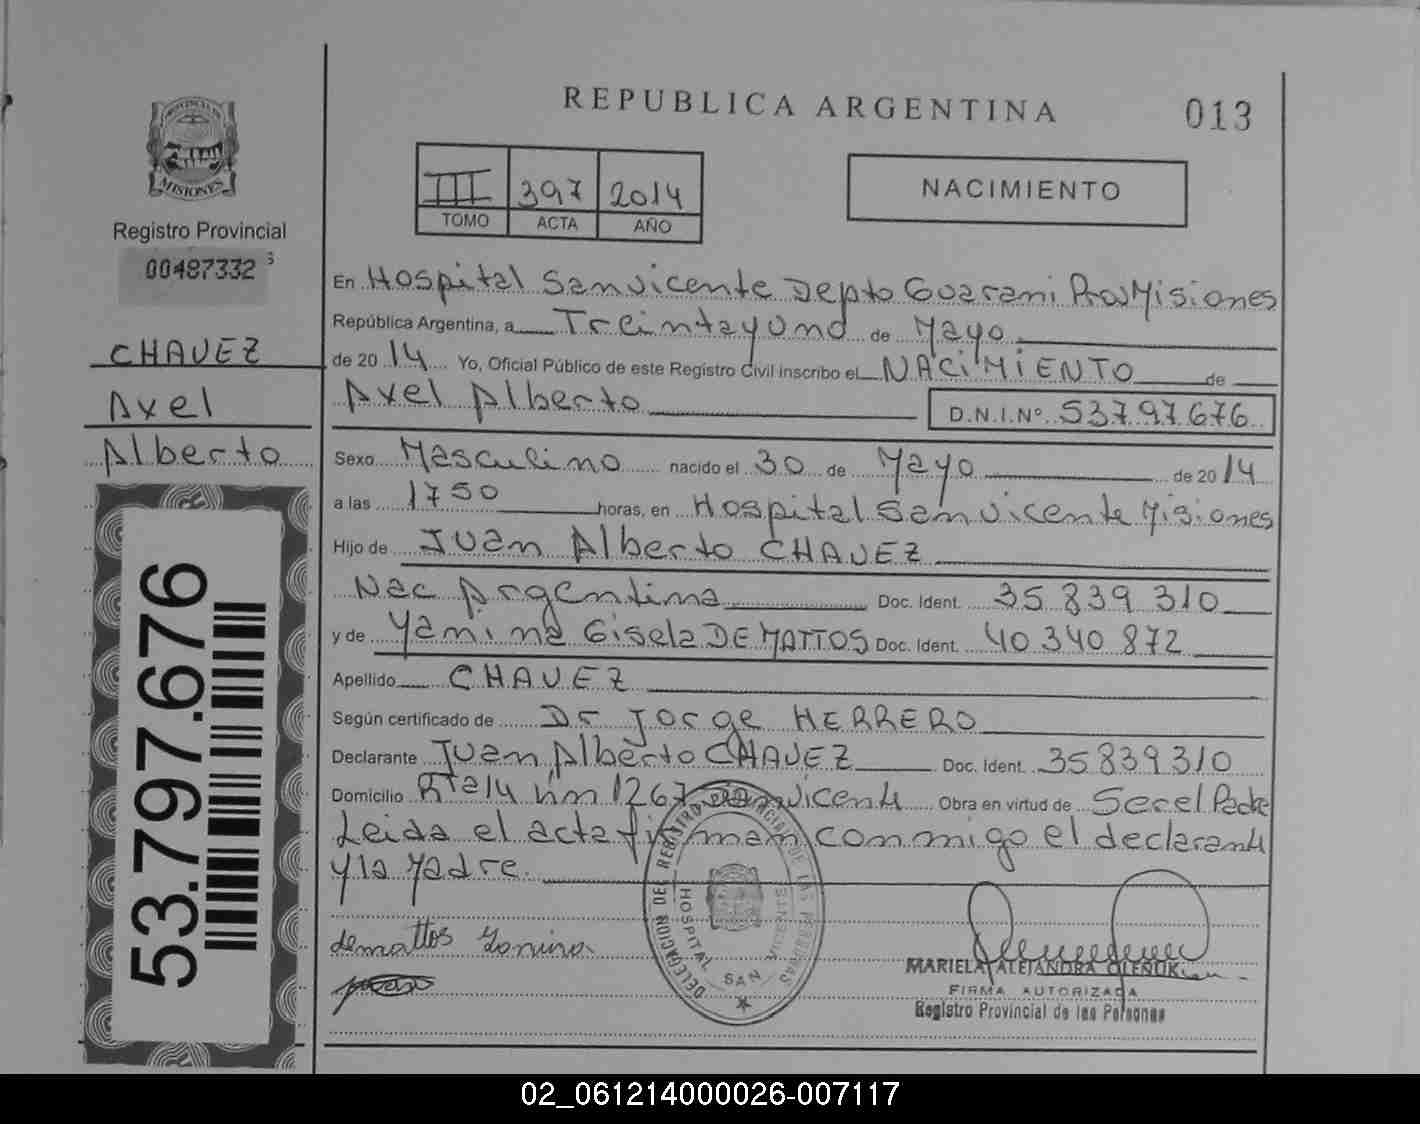 REPUBLICA ARGENTINA
013
PROVINCIA DE
MISIONES
Registro Provincial
00487332 3
III 397 2014
TOMO ACTA AÑO
NACIMIENTO
CHAVEZ
Axel
Alberto
53.797.676
En Hospital San vicente Depto Guarani Prov Misiones
República Argentina, a Treintayuno de Mayo
de 20 14 Yo, Oficial Público de este Registro Civil inscribo el NACIMIENTO de
Axel Alberto D.N.I.Nº 53797676
Sexo Masculino nacido el 30 de Mayo de 20 14
a las 1750 horas, en Hospital San vicente Misiones
Hijo de Juan Alberto CHAVEZ
Nac Argentina Doc. Ident. 35 839 310
y de Yamina Gisela DE MATTOS Doc. Ident. 40 340 872
Apellido CHAVEZ
Según certificado de Dr Jorge HERRERO
Declarante Juan Alberto CHAVEZ Doc. Ident. 35 839 310
Domicilio Rta 14 km 1267 San vicente Obra en virtud de Ser el Padre
Leida el acta firman conmigo el declarante
y la Madre.
demattos Yamina
DELEGACION DEL REGISTRO PROVINCIAL DE LAS PERSONAS
HOSPITAL SAN VICENTE
MARIELA ALEJANDRA OLEÑUK
FIRMA AUTORIZADA
Registro Provincial de las Personas
02_061214000026-007117